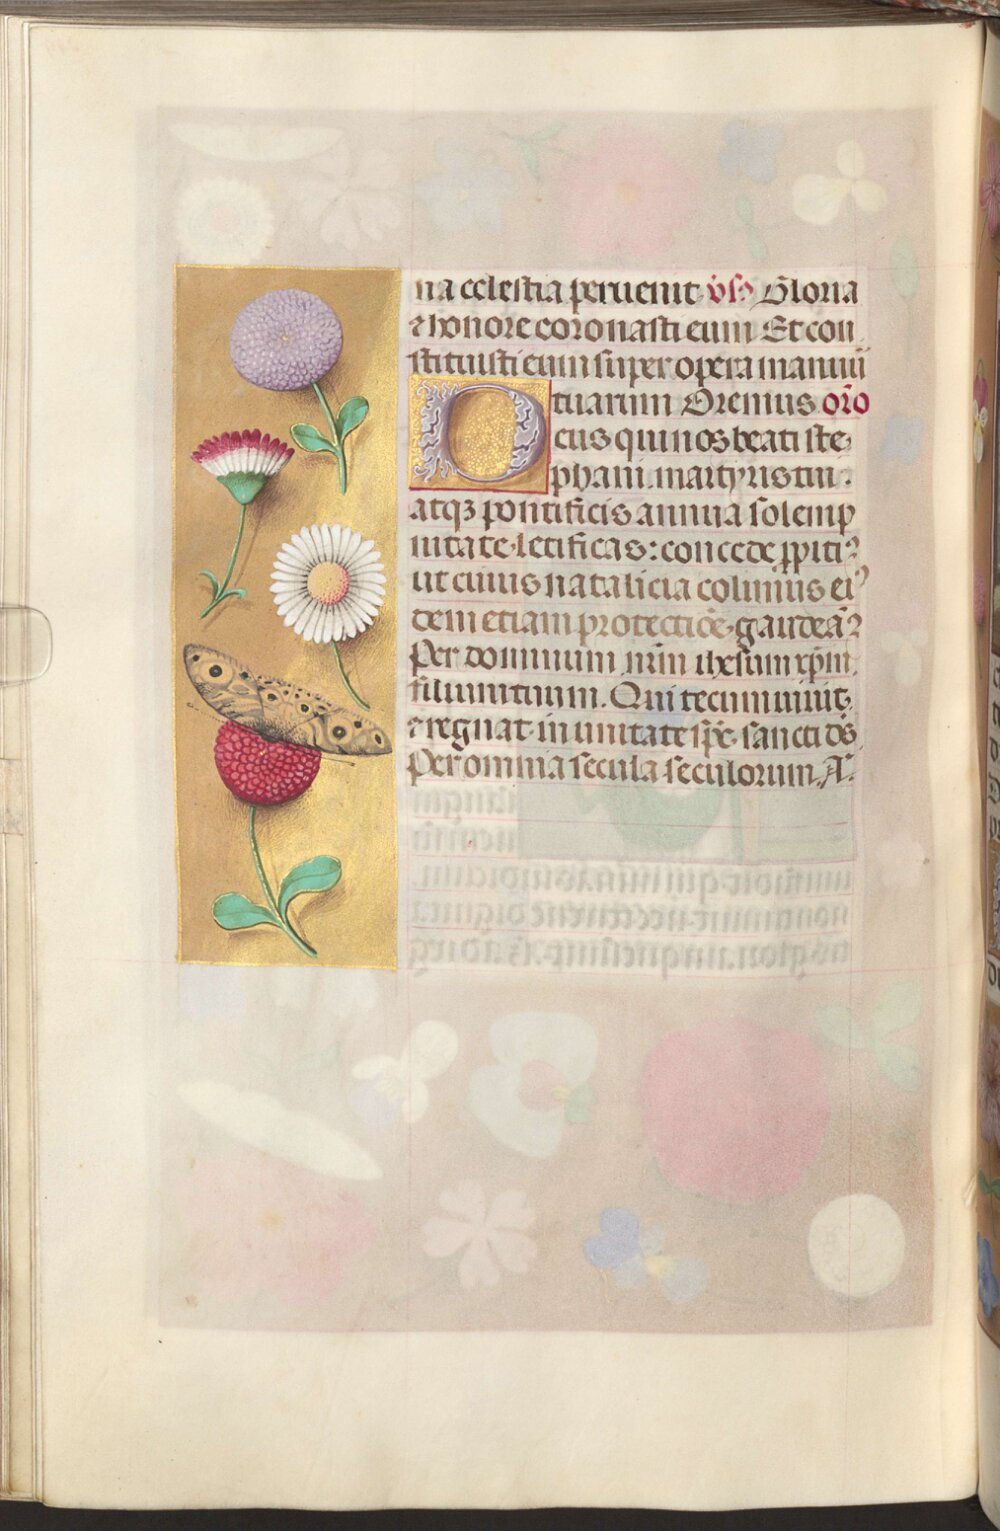 na celestia peruenit v̄s̄: Gloria
⁊ honore coronasti eum Et con
stituisti eum super opera manuū
tuarum Oremus or̄o
Deus qui nos beati ste
phani martyris tui
atqꝫ pontificis annua solemp
nitate letificas: concede ꝓpiti⁊
ut cuius natalicia colimus eiꝰ
dem etiam protectiōe gaudeā⁊
Per dominum nr̄m ihesum xp̄m
filium tuum. Qui tecum uiuit
⁊ regnat in unitate sp̄s sancti ds̄
Per omnia secula seculorum. A